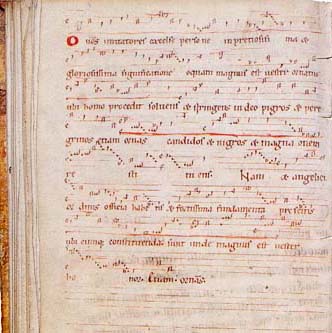 O vos imitatores excelse persone in preciosissima et
gloriosissima significatione o quam magnus est vester ornatus
ubi homo procedit solvens et stringens in deo pigros et pere
grinos etiam ornans candidos et nigros et magna onera
re mit tens. Nam et angelici
ordinis officia habetis et fortissima fundamenta prescitis
ubi cumque constituenda sunt unde magnus est vester
ho nos. Etiam ornans.